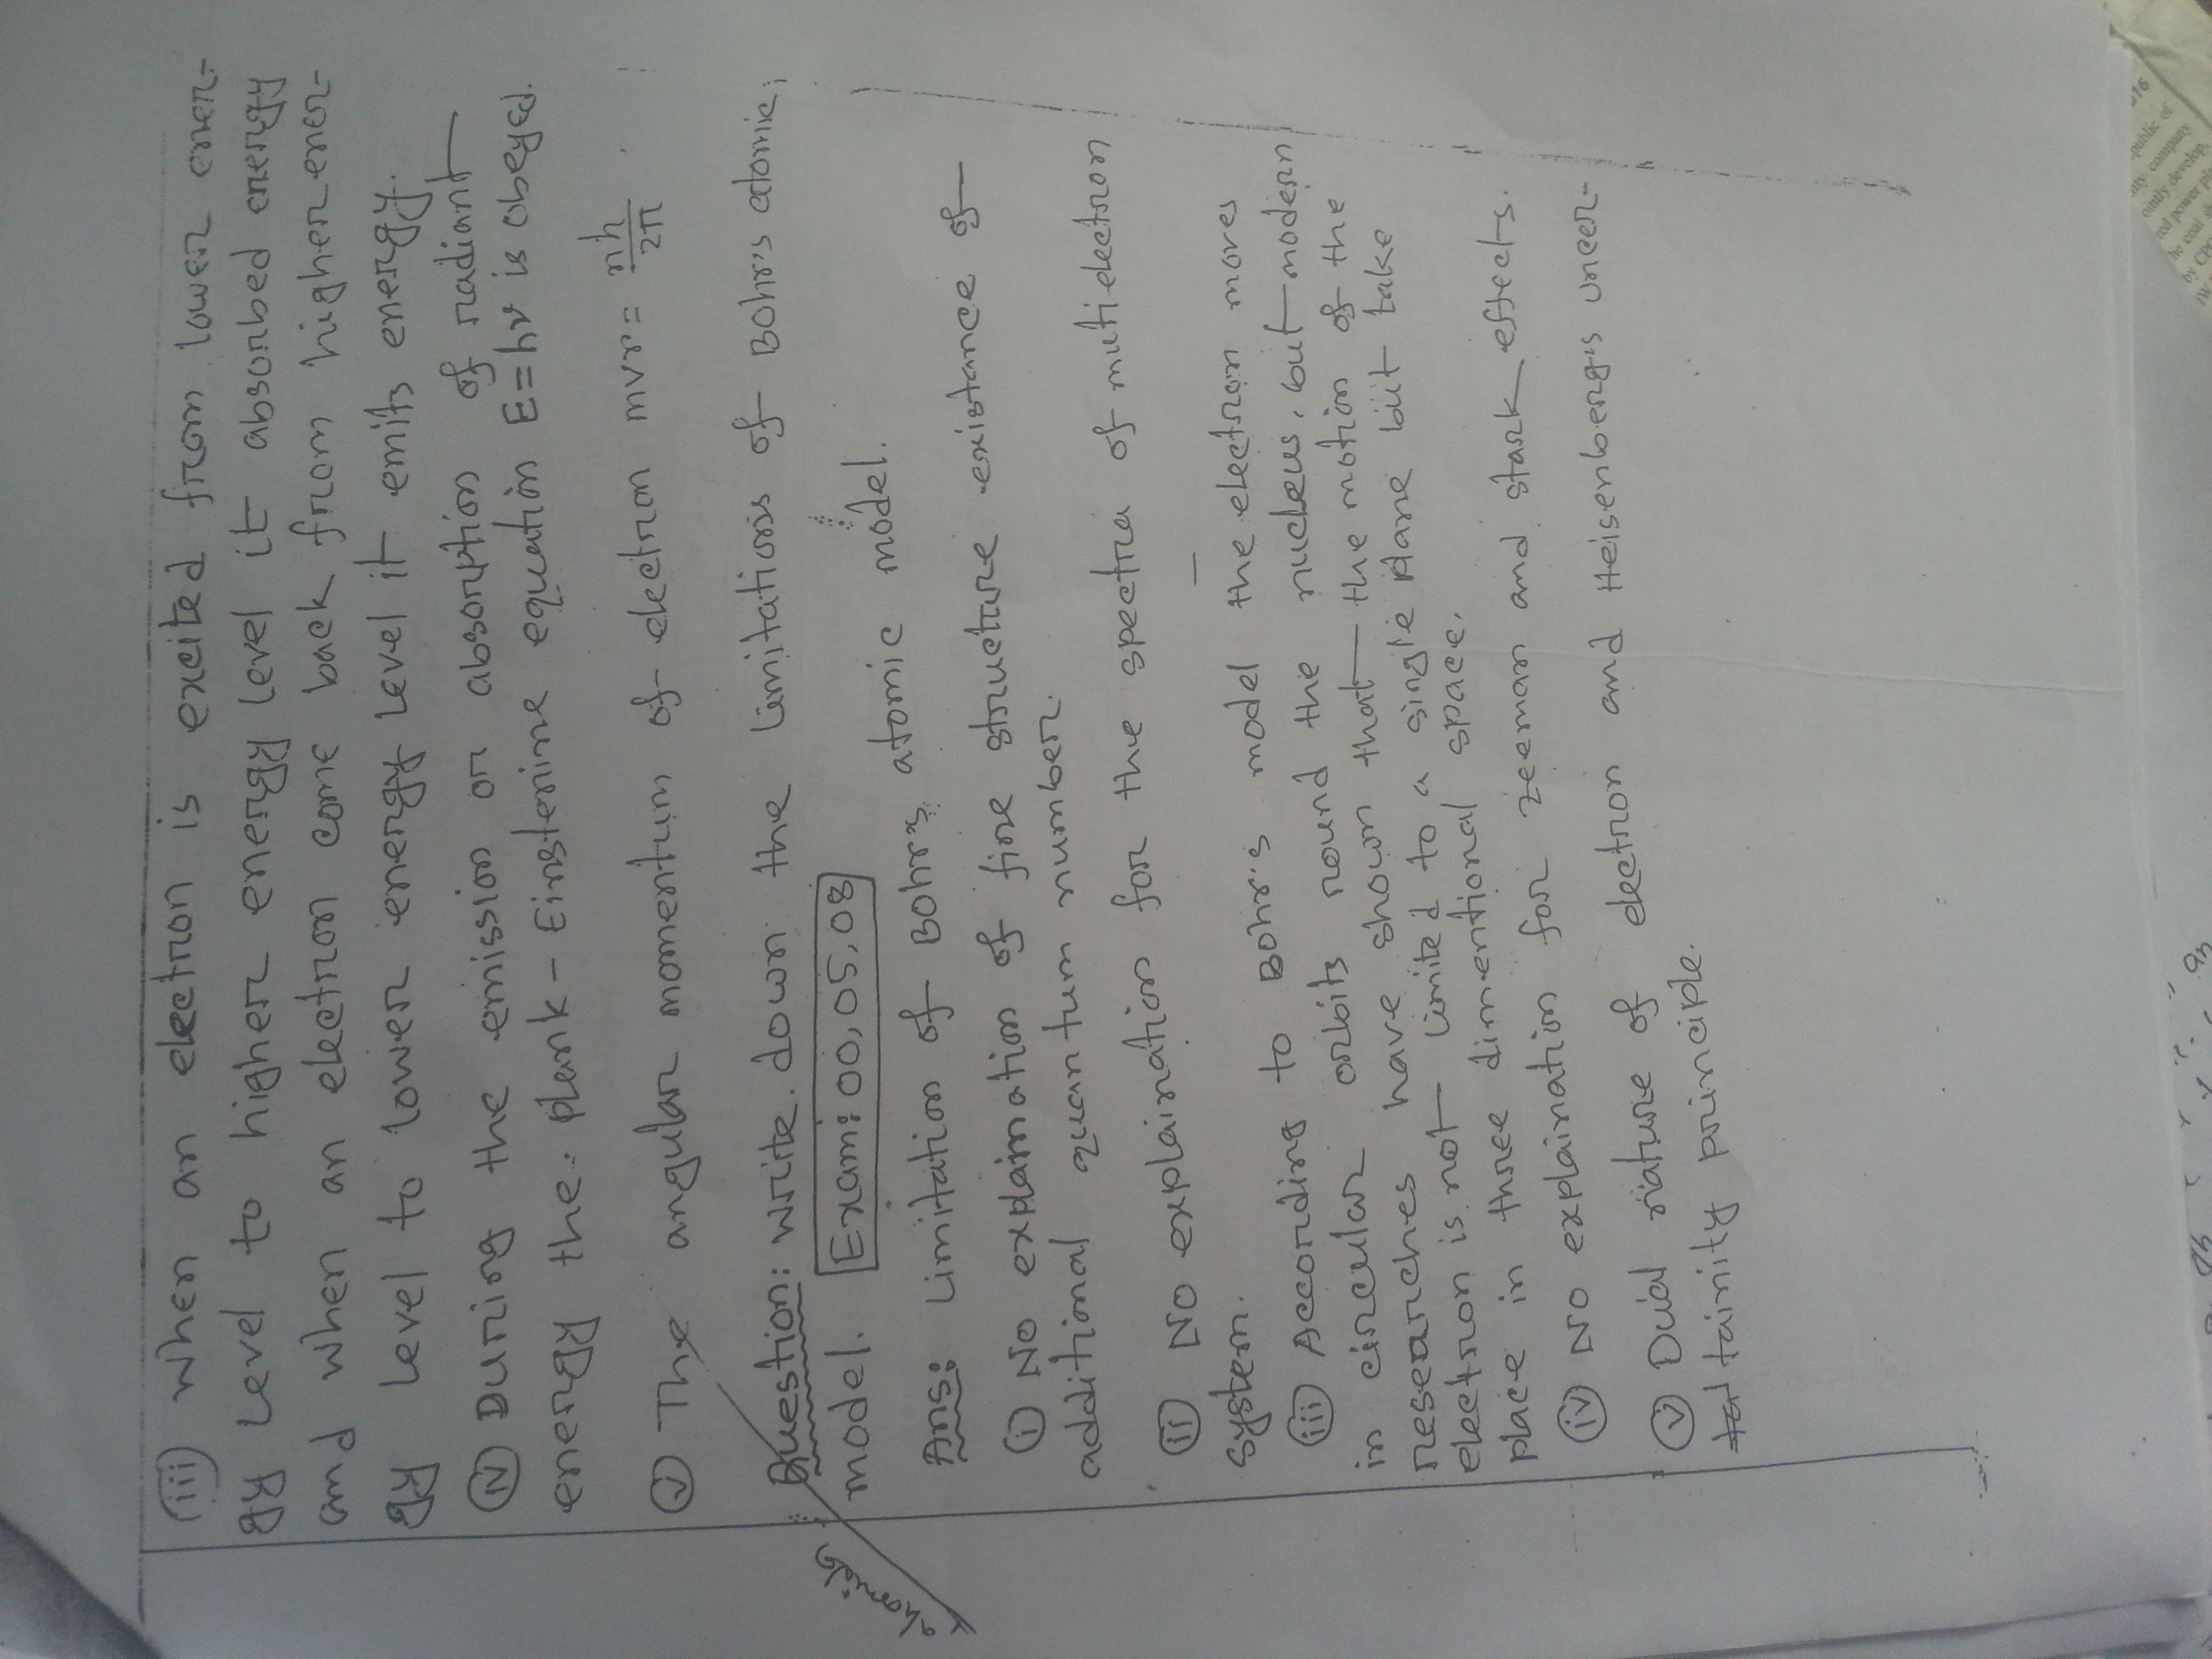 (iii) When an electron is excited from lower ener-
gy level to higher energy level it absorbed energy
and when an electron come back from higher ener-
gy level to lower energy level it emits energy.
(iv) During the emission or absorption of radiant
energy the plank - Einstenine equation E=hν is obeyed.
(v) The angular momentum of electron mvr= nh/2π
Question: Write down the limitations of Bohr's atomic
model. Exam: 00, 05, 08
Ans: Limitation of Bohr's atomic model.
(i) No explaination of fine structure existance of
additional quantum number.
(ii) No explaination for the spectra of mutielectron
system.
(iii) According to Bohr's model the electron moves
in circular orbits round the nucleus, but modern
researches have shown that the motion of the
electron is not limited to a single plane but take
place in three dimentional space.
(iv) No explaination for zeeman and stark effects.
(v) Dual nature of electron and Heisenberg's uncer-
tainity principle.
16
public of
company
ointly develop
power
coal
by